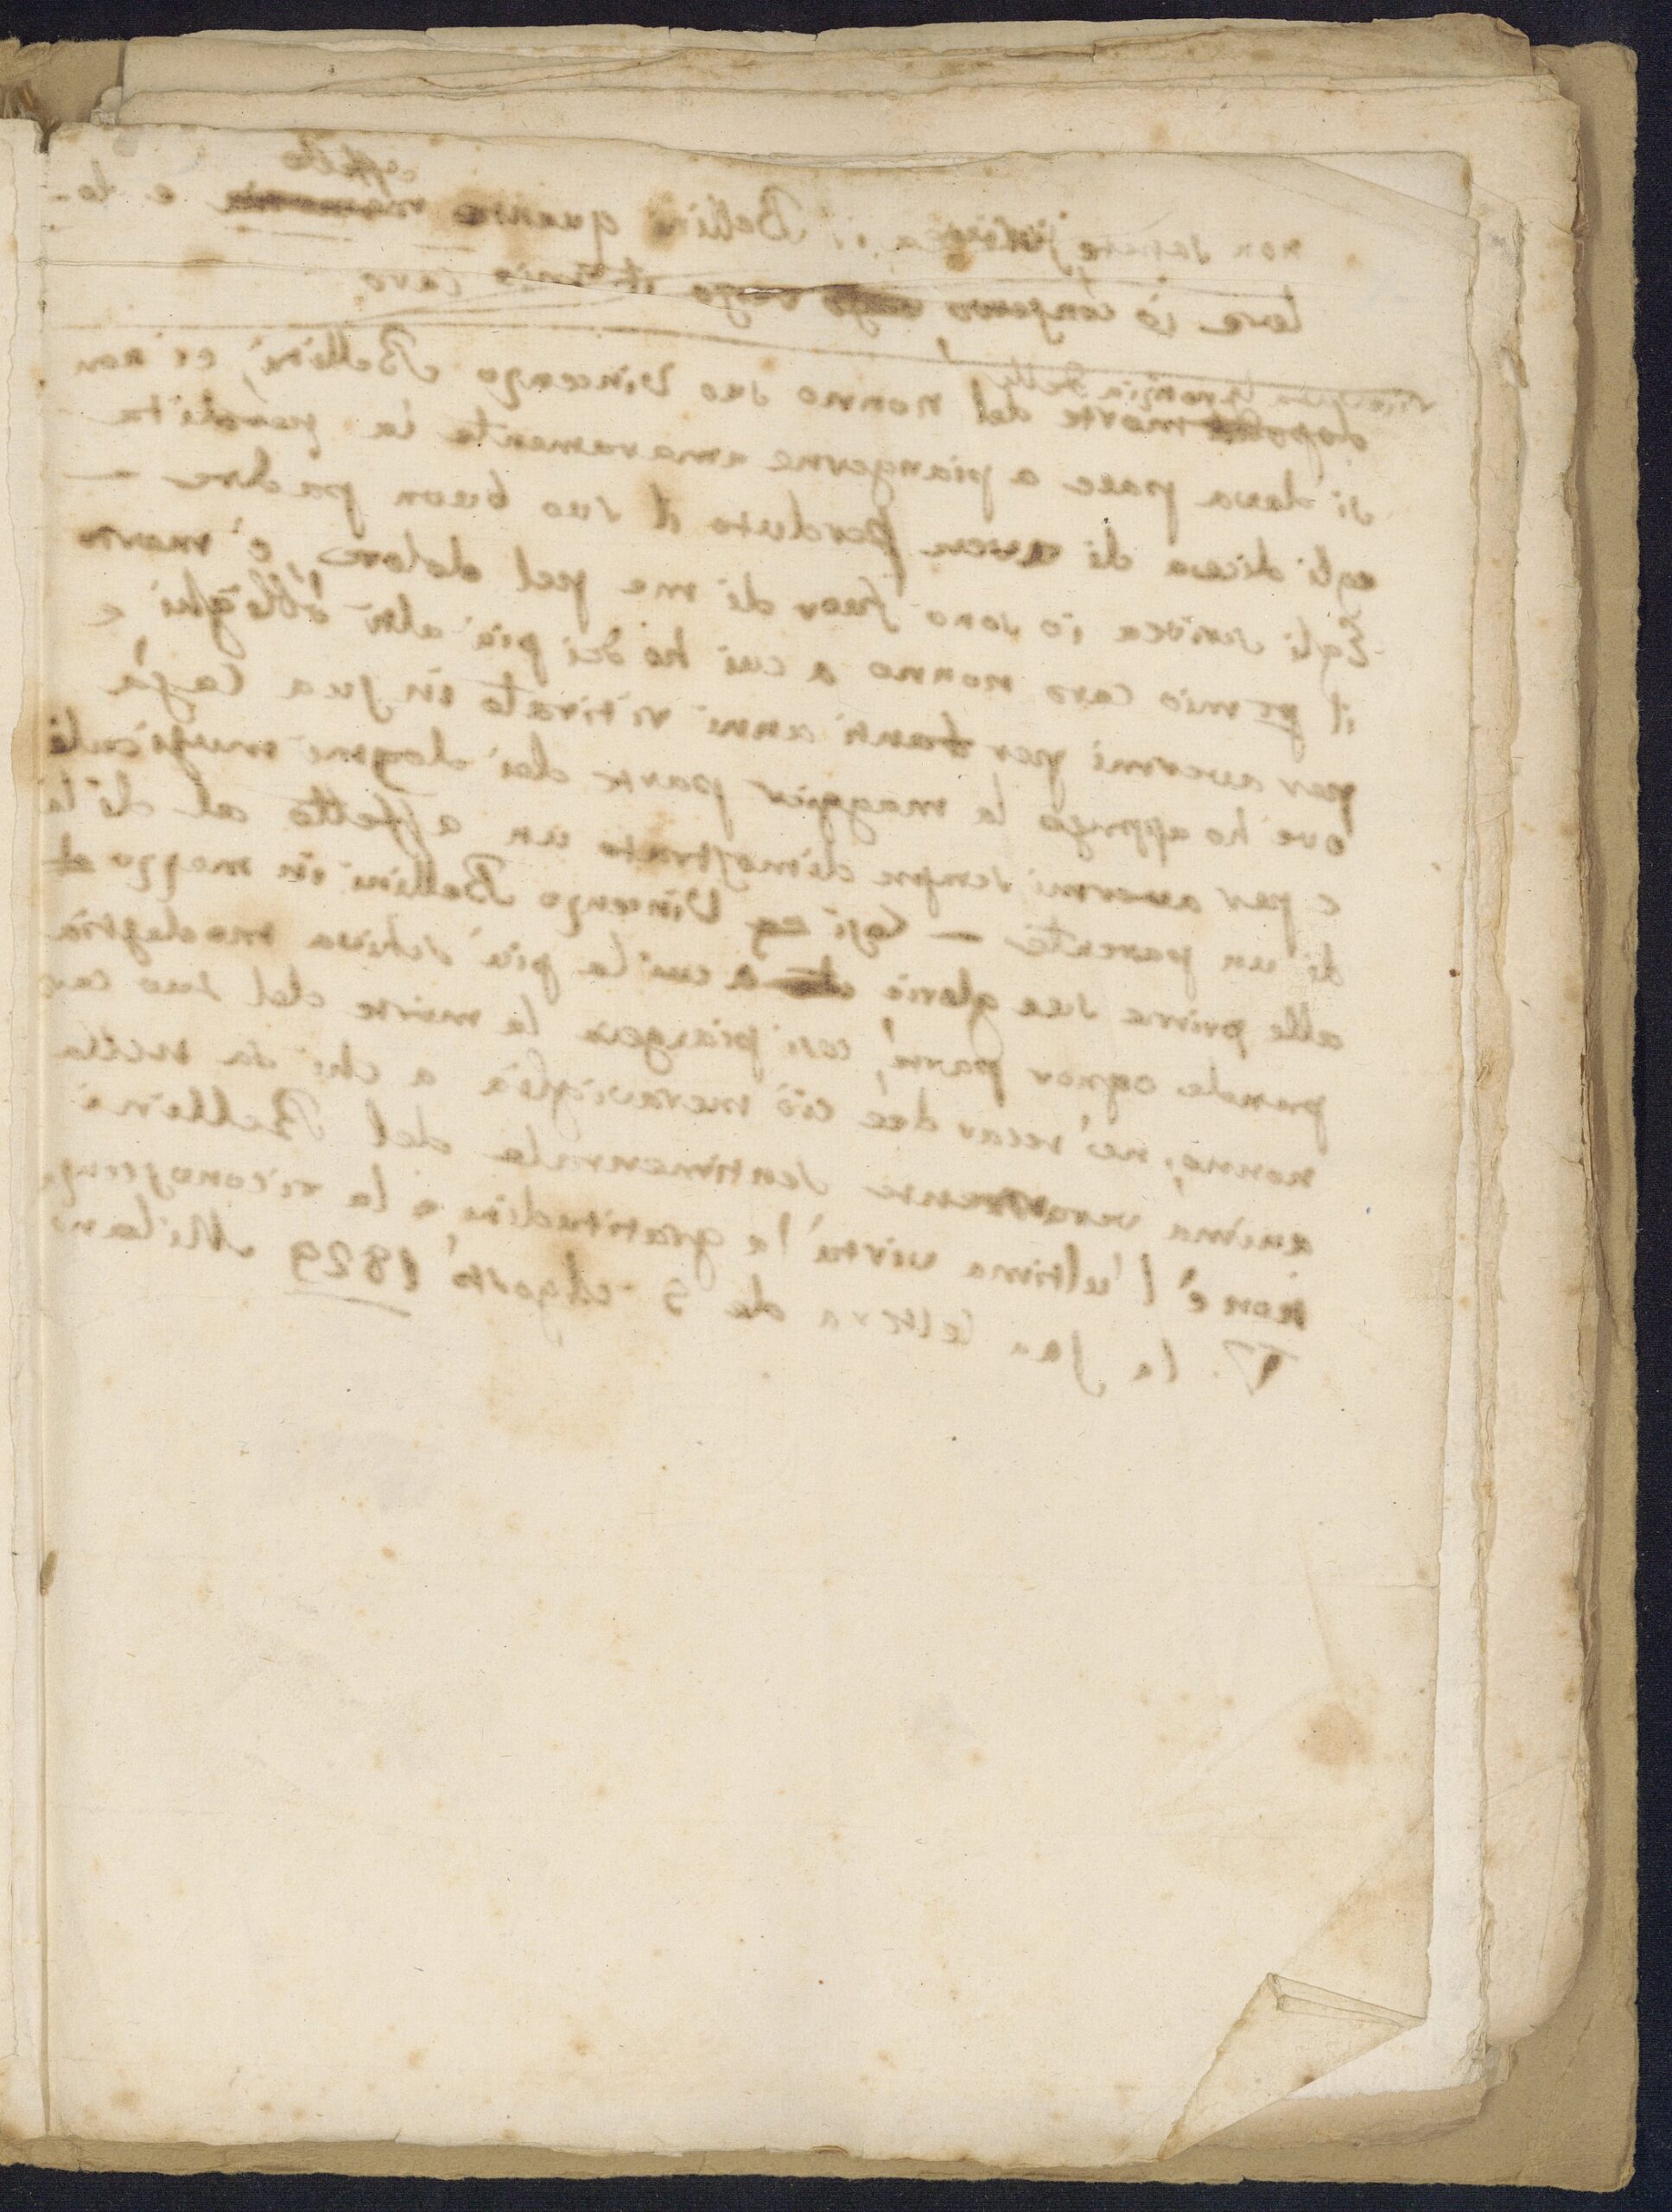 effetto
non sentite Bellini quanto e lo-
tere io conservo il mio caro
dopo morte del nonno suo Vincenzo Bellini, ei non
si dava pace a piangerne amaramente la perdita
egli diceva di aver perduto il suo buon padre —
Egli scrivea io sono fuor di me pel dolore, è morto
il mio caro nonno a cui ho dei più alti obblighi e
per avermi per tanti anni ritirato in sua casa
ove ho appreso la maggior parte dei dogmi musicali
e per avermi sempre dimostrato un affetto al di là
di un parente — Così Vincenzo Bellini in mezzo
alle prime sue glorie a cui la più schiva modestia
prude ognor parve, così piangeva la morte del suo caro
nonno; nè recar dee ciò meraviglia a chi sa nella
anima veramente sentimentale del Bellini
non è l'ultima virtù la gratitudine e la riconoscenza
V. la sua lettera de 5 Agosto 1829 Milano